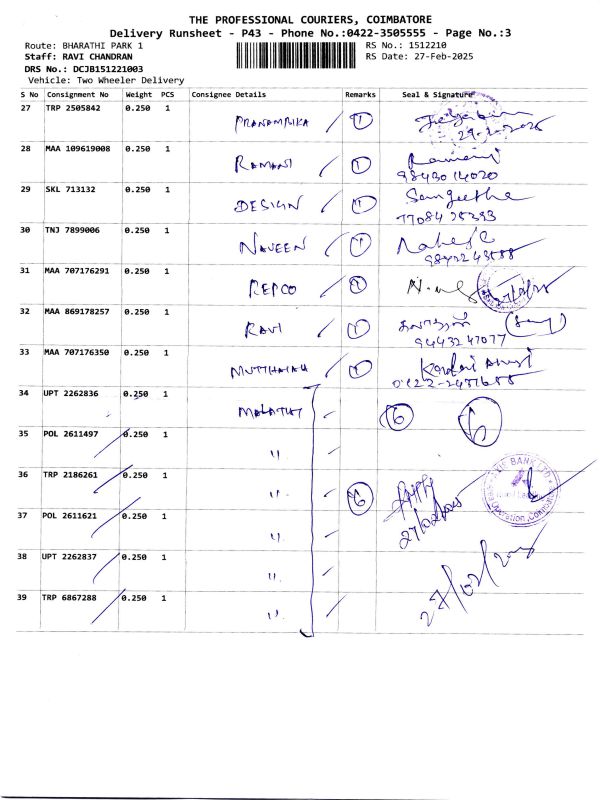 THE PROFESSIONAL COURIERS, COIMBATORE
Delivery Runsheet - P43 - Phone No.:0422-3505555 - Page No.:3
Route: BHARATHI PARK 1 RS No.: 1512210
Staff: RAVI CHANDRAN RS Date: 27-Feb-2025
DRS No.: DCJB151221003
Vehicle: Two Wheeler Delivery
S No Consignment No Weight PCS Consignee Details Remarks Seal & Signature
27 TRP 2505842 0.250 1
PRANAMBIKA 1
28 MAA 109619008 0.250 1
RAMANI 1 Ramani
9843014020
29 SKL 713132 0.250 1
DESIGN 1 Sangeetha
30 TNJ 7899006 0.250 1
NAVEEN 1
31 MAA 707176291 0.250 1
REPCO 1
32 MAA 869178257 0.250 1
RAVI 1
9443247077
33 MAA 707176350 0.250 1
MUTTHAIAH 1
34 UPT 2262836 0.250 1
MALATHI 6 6
35 POL 2611497 0.250 1
"
36 TRP 2186261 0.250 1
" 6
27/02/2025
37 POL 2611621 0.250 1
"
38 UPT 2262837 0.250 1
"
27/02/2025
39 TRP 6867288 0.250 1
"